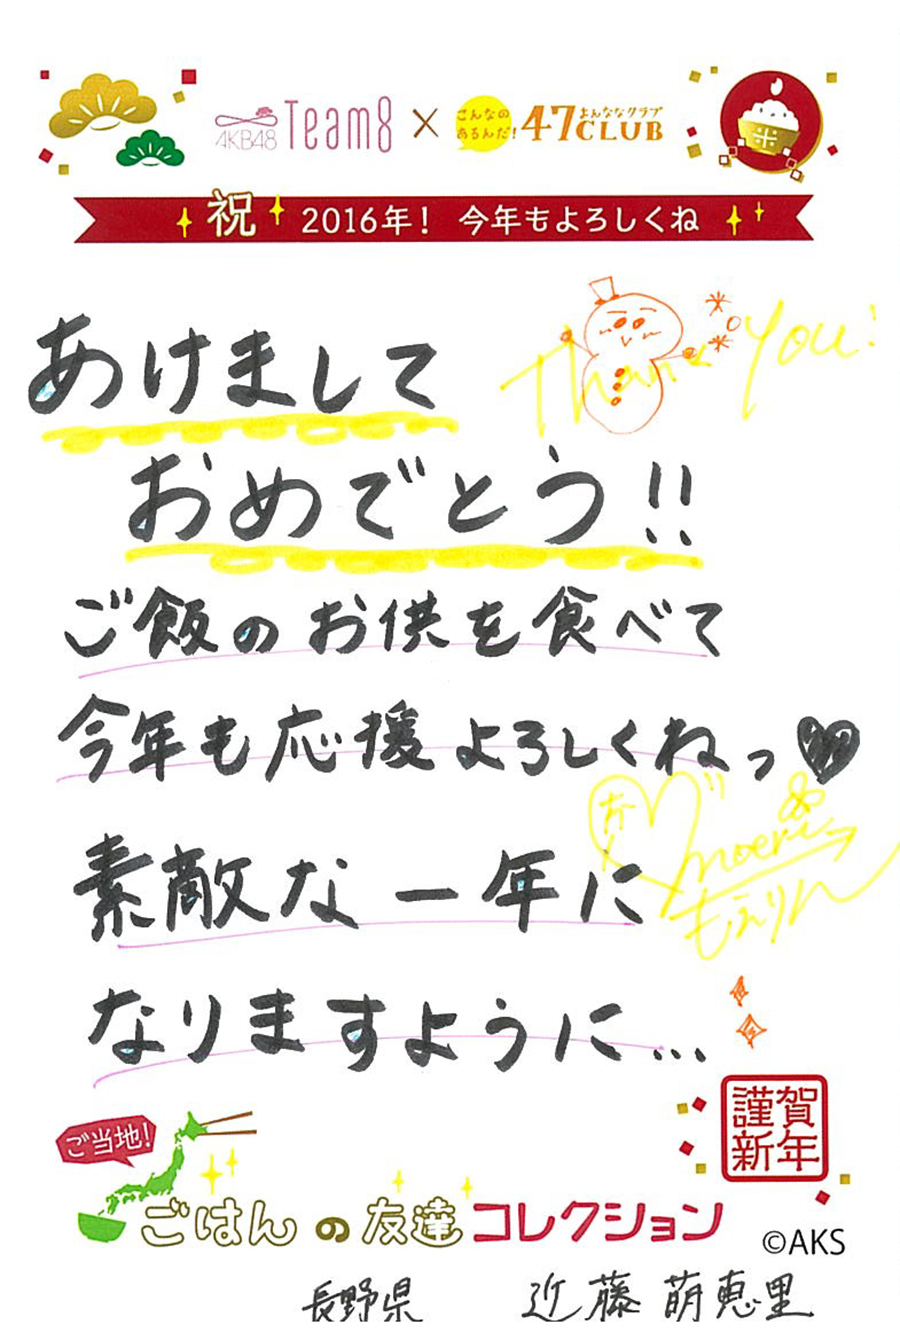 AKB48 Team8 × こんなのあるんだ! 47CLUB よんななクラブ
祝 2016年! 今年もよろしくね
Thank You!
あけまして
おめでとう!!
ご飯のお供を食べて
今年も応援よろしくねっ
素敵な一年に
moeri
もえりん
なりますように...
謹賀
新年
ご当地!
ごはんの友達コレクション
©AKS
長野県 近藤萌恵里